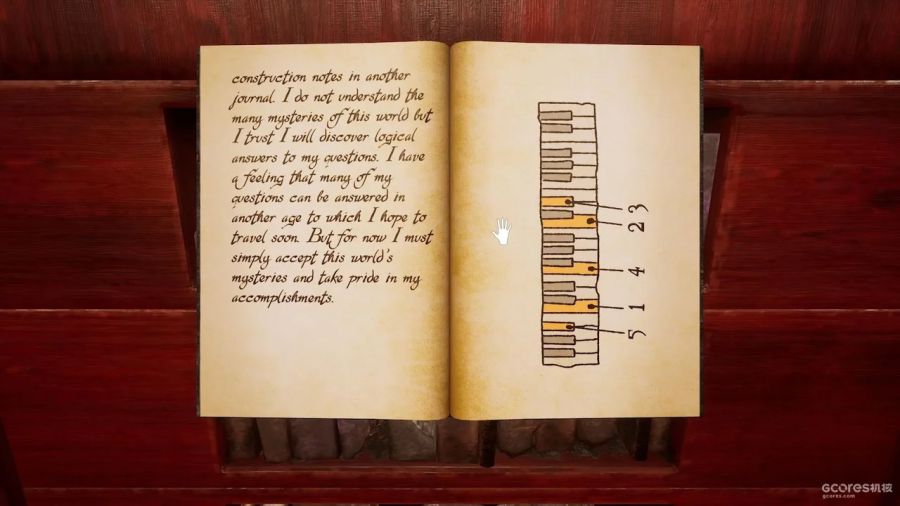 construction notes in another
journal. I do not understand the
many mysteries of this world but
I trust I will discover logical
answers to my questions. I have
a feeling that many of my
questions can be answered in
another age to which I hope to
travel soon. But for now I must
simply accept this world's
mysteries and take pride in my
accomplishments.
3
2
4
1
5
GCORES机核
gcores.com